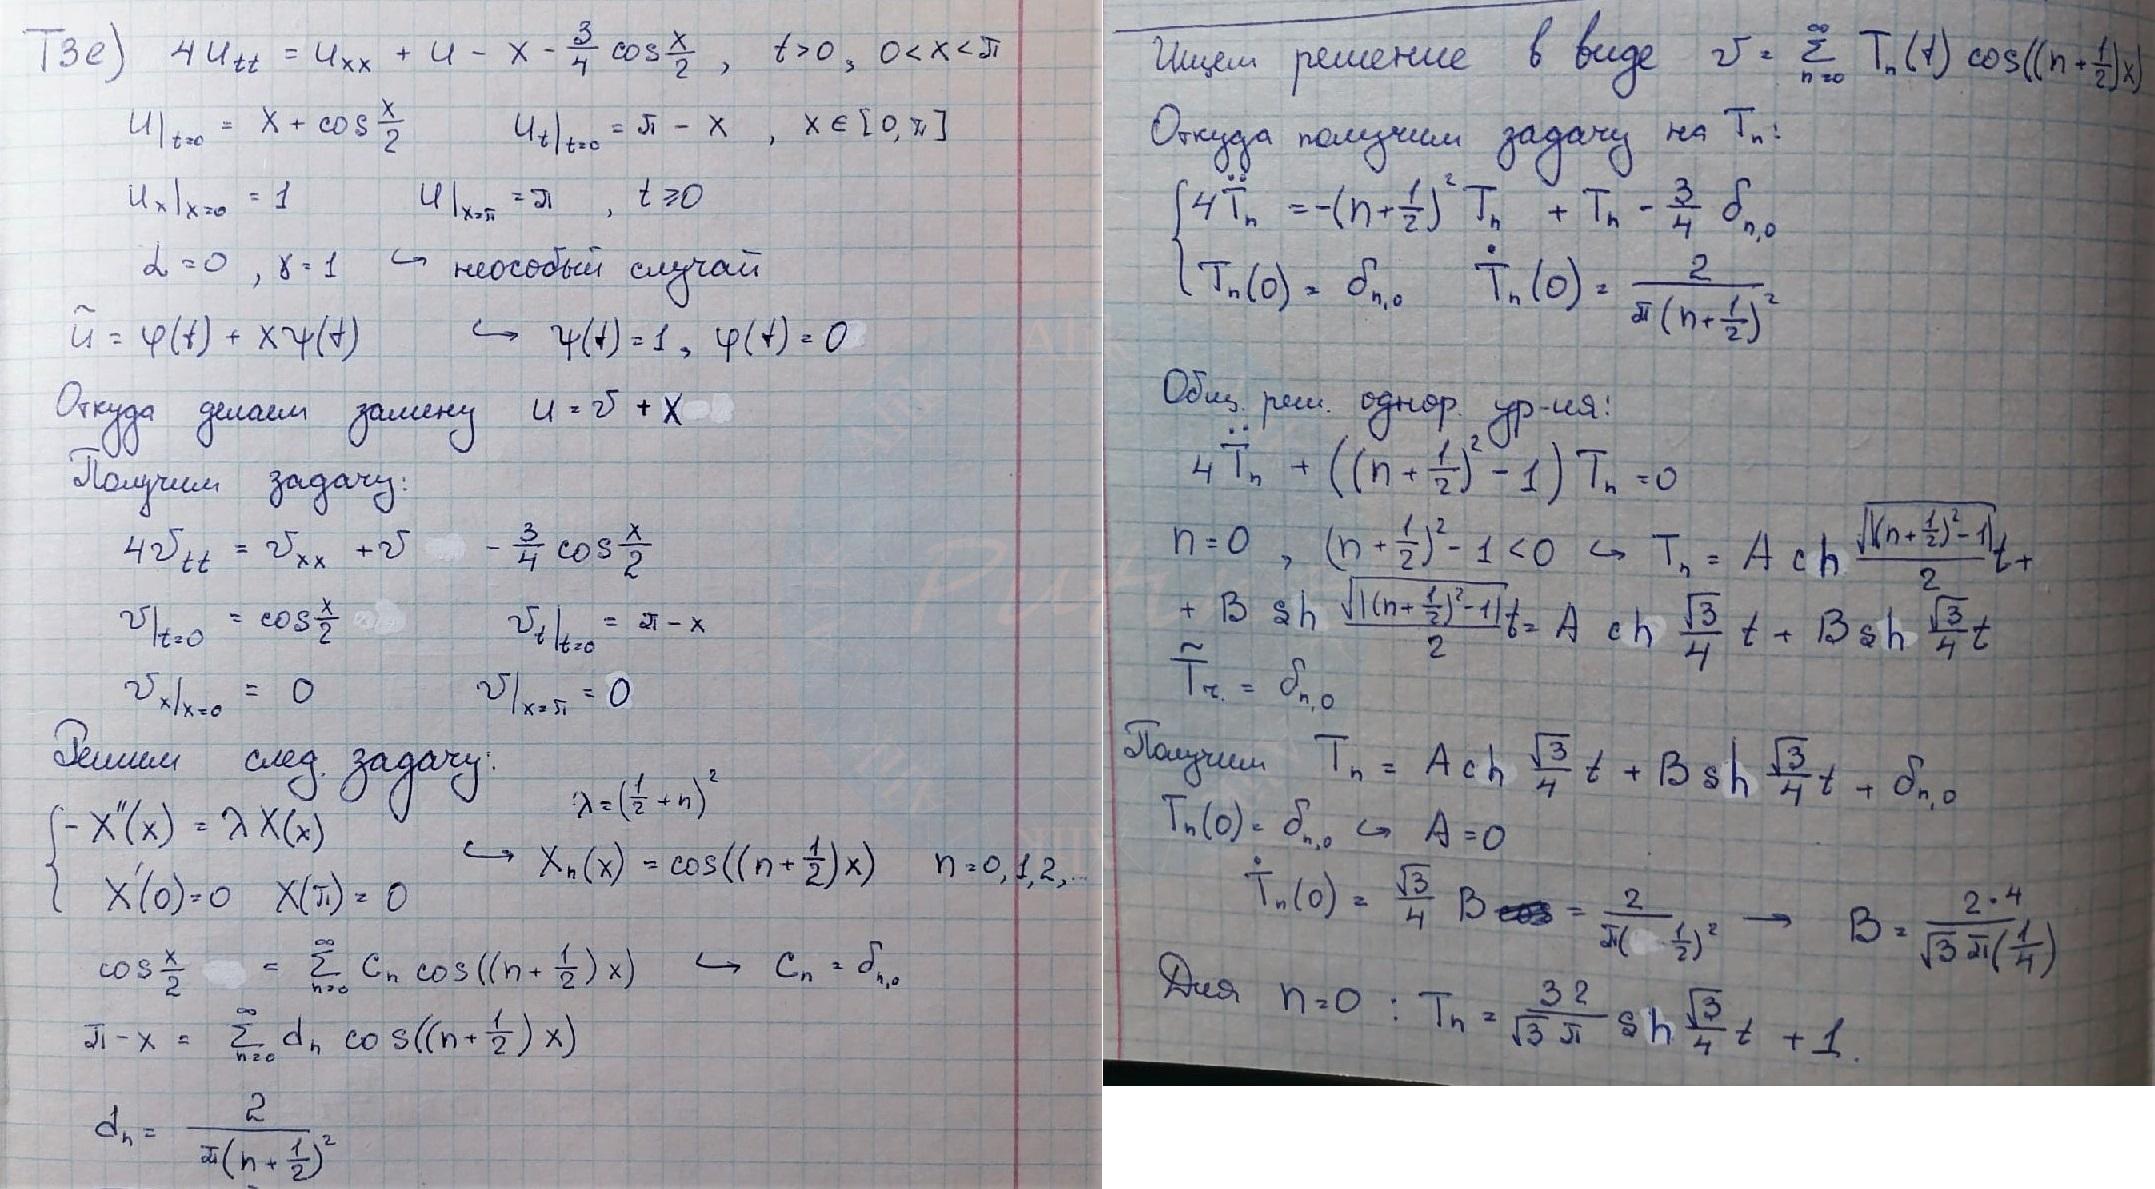 Т3е) 4u_tt = u_xx + u - x - 3/4 cos x/2 , t>0, 0<x<π
u|_t=0 = x + cos x/2   u_t|_t=0 = π - x , x ∈ [0,π]
u_x|_x=0 = 1   u|_x=π = π , t≥0
α=0, γ=1 ↪ неособый случай
ũ = φ(t) + xψ(t) ↪ ψ(t)=1, φ(t)=0
Откуда делаем замену u = v + x
Получим задачу:
4v_tt = v_xx + v - 3/4 cos x/2
v|_t=0 = cos x/2   v_t|_t=0 = π - x
v_x|_x=0 = 0   v|_x=π = 0
Решим след. задачу:
λ = (1/2 + n)^2
{ -X''(x) = λX(x)
X'(0)=0 X(π)=0 ↪ X_n(x) = cos((n+1/2)x) n=0,1,2,...
cos x/2 = Σ_{n=0}^∞ c_n cos((n+1/2)x) ↪ c_n = δ_n,0
π-x = Σ_{n=0}^∞ d_n cos((n+1/2)x)
d_n = 2/(π(n+1/2)^2)
Ищем решение в виде v = Σ_{n=0}^∞ T_n(t) cos((n+1/2)x)
Откуда получим задачу на T_n:
{ 4T̈_n = -(n+1/2)^2 T_n + T_n - 3/4 δ_n,0
T_n(0) = δ_n,0   Ṫ_n(0) = 2/(π(n+1/2)^2)
Общ. реш. однор. ур-ия:
4T̈_n + ((n+1/2)^2 - 1) T_n = 0
n=0, (n+1/2)^2 - 1 < 0 ↪ T_n = A ch √|(n+1/2)^2-1|/2 t +
+ B sh √|(n+1/2)^2-1|/2 t = A ch √3/4 t + B sh √3/4 t
T̃_ч. = δ_n,0
Получим T_n = A ch √3/4 t + B sh √3/4 t + δ_n,0
T_n(0) = δ_n,0 ↪ A=0
Ṫ_n(0) = √3/4 B = 2/(π( 1/2)^2) → B = 2·4/(√3 π(1/4))
Для n=0 : T_n = 32/(√3 π) sh √3/4 t + 1.